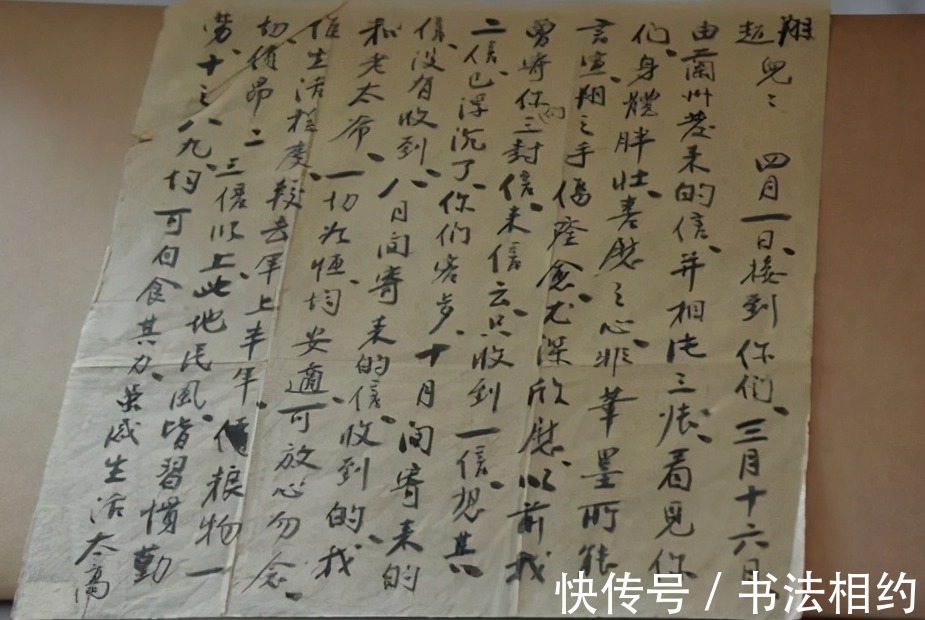 翔
超兒：四月一日、接到你們、三月十六日、
由蘭州發來的信、并相片三張、看見你
們、身體胖壯喜慰之心非筆墨所能
言宣、翔之手傷痊愈尤深欣慰、以前我
曾將你們三封信、來信云、只收到一信、想其
二信已浮沉了、你們客岁、十月间寄来的
信、没有收到、八月间寄来的信、收到的、我
和老太爷、一切如恒均安適可放心勿念、
惟生活程度、較去年上半年、價粮物一
切價昂二三倍以上、此地民風、皆習慣勤
劳、十之八九、均可自食其力、虽感生活太高
快传号 / 书法相约